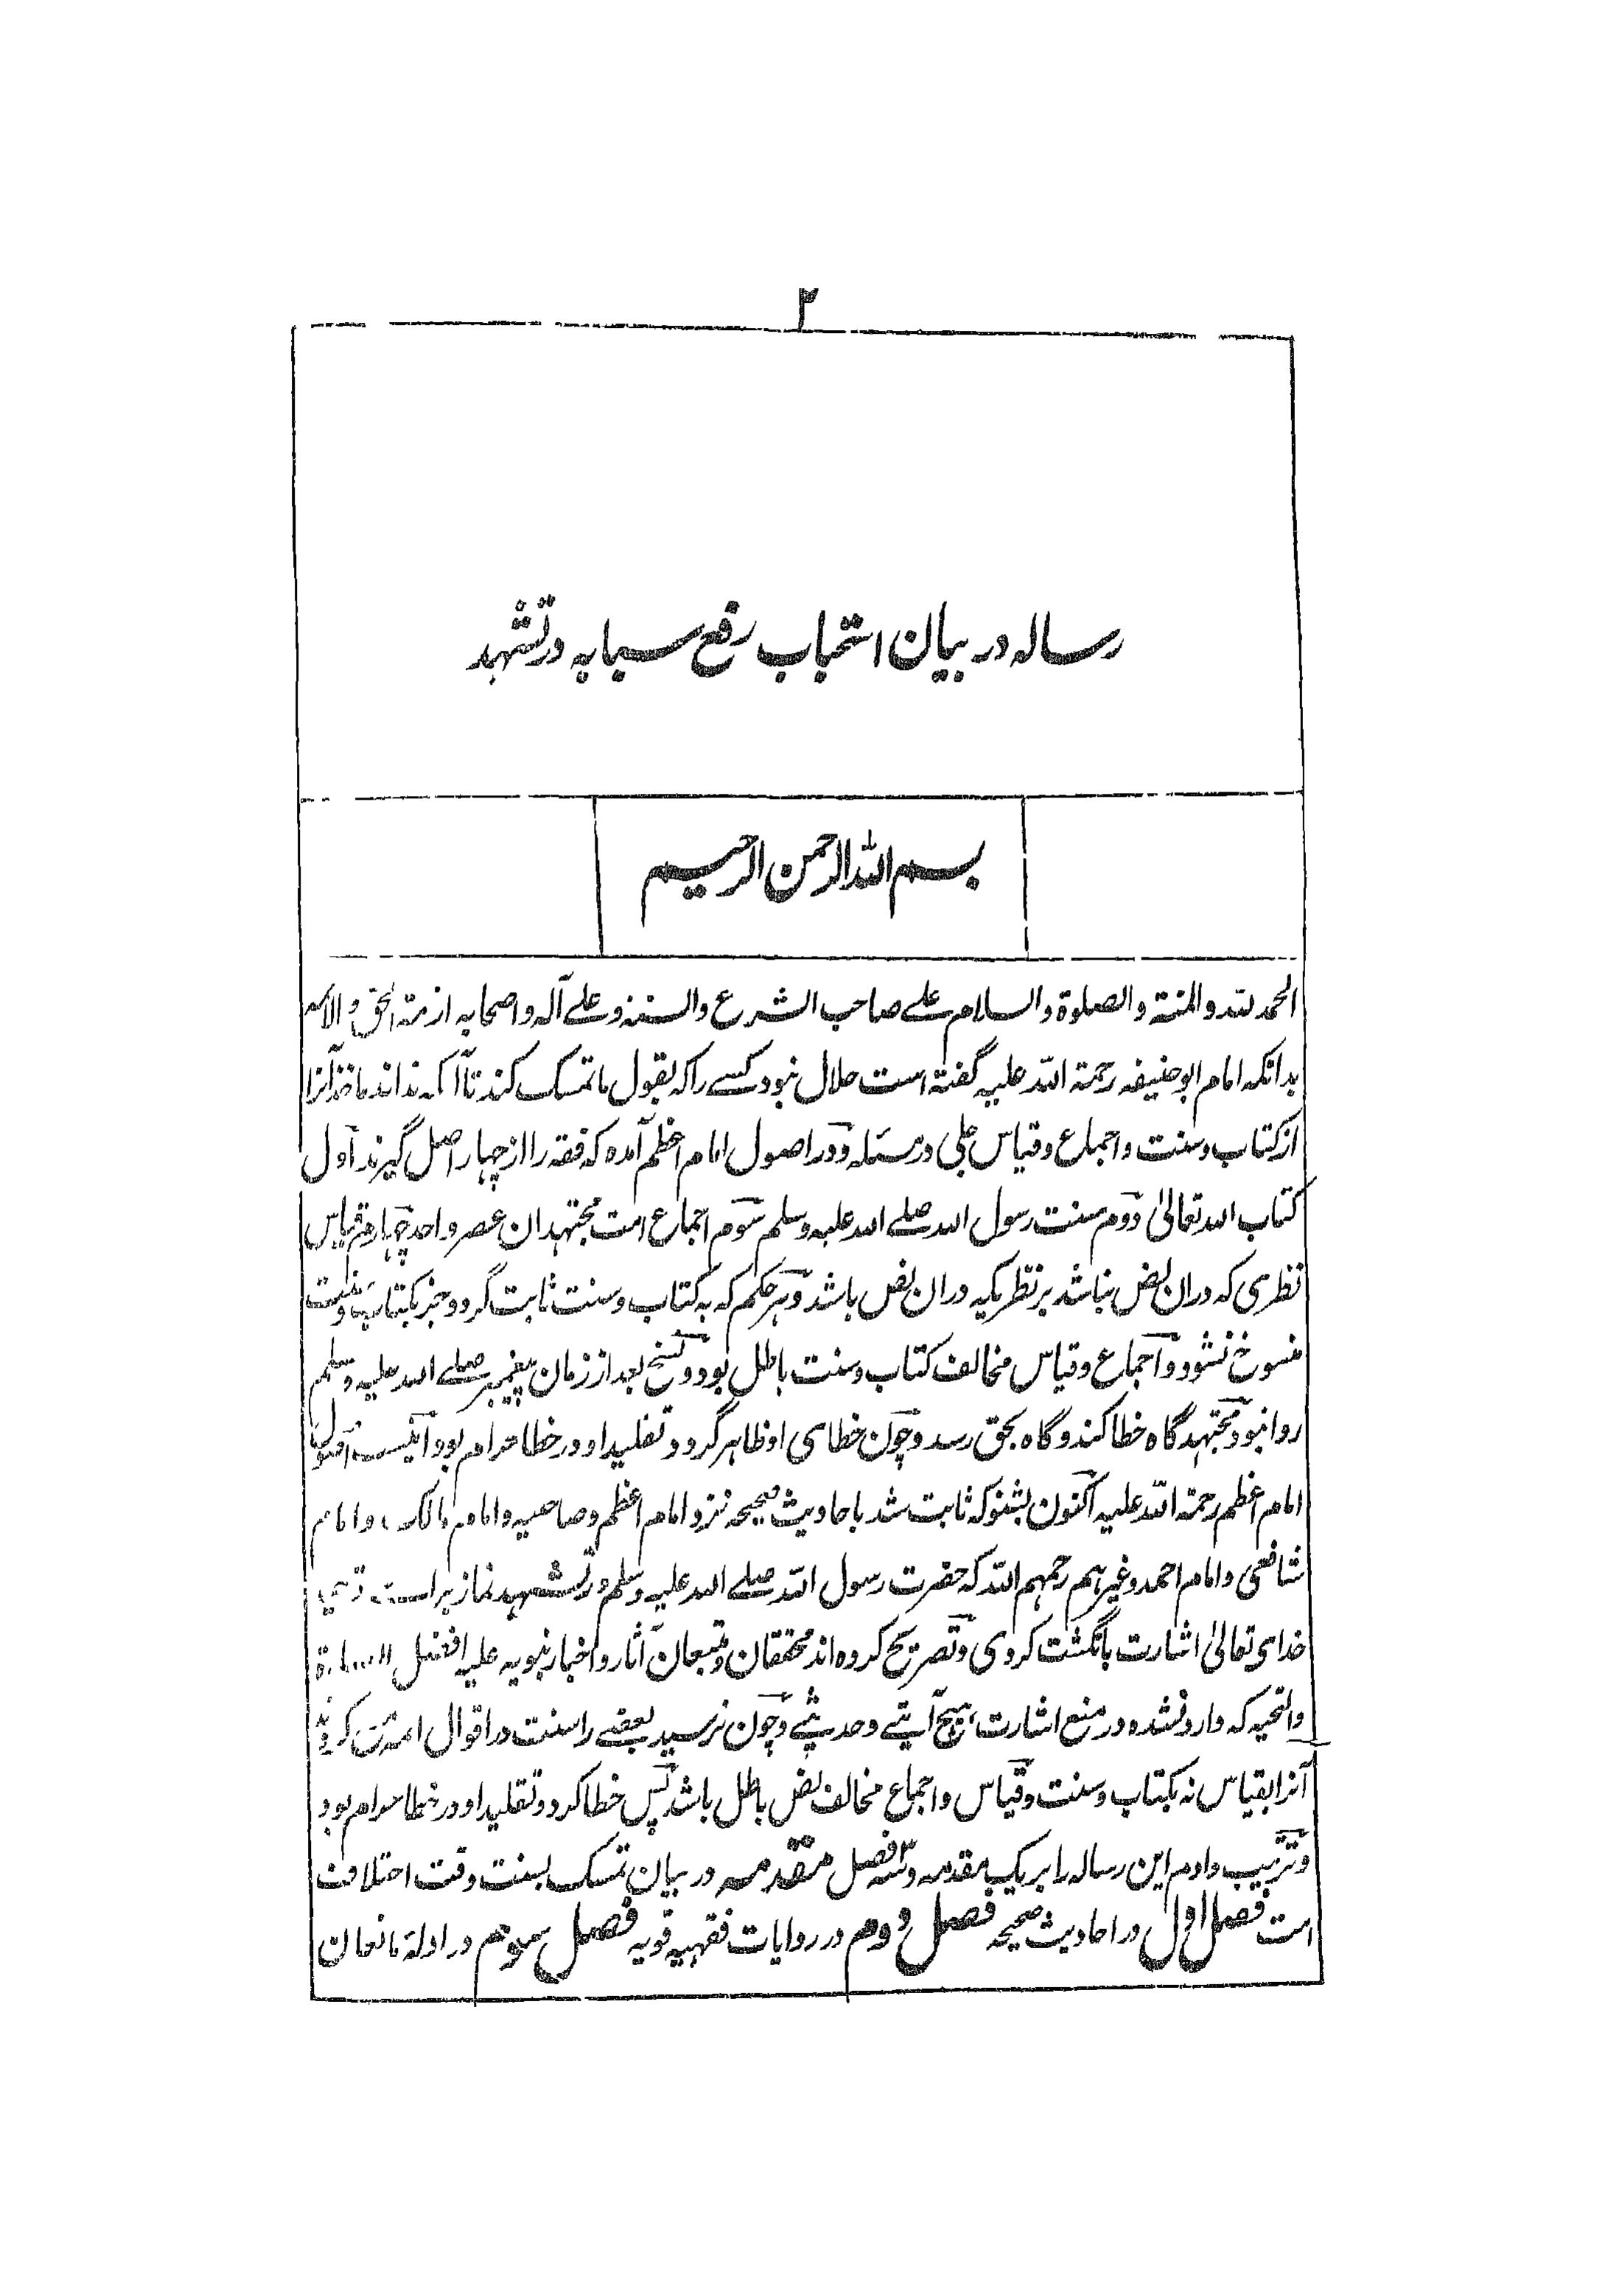 ۲
رساله در بیان استحباب رفع سبابه در تشهد
بسم الله الرحمن الرحیم
الحمد لله والمنة والصلوة والسلام علے صاحب الشرع والسنة وعلے آله واصحابه ازمة الحق و
بدانکه امام ابوحنیفه رحمة الله علیه گفته است حلال نبود کسے را که بقول ما تمسک کند تا آنکه نداند ماخذ آنرا
از کتاب وسنت واجماع وقیاس جلی در مسئله ودر اصول امام اعظم آمده که فقه را از چهار اصل گیرند اول
کتاب الله تعالیٰ دوم سنت رسول الله صلے الله علیه وسلم سوم اجماع امت مجتهدان عصر واحد چهارم قیاس
نظری که دران نص نباشد بر نظریکه دران نص باشد وهر حکم که به کتاب وسنت ثابت گردد جز بکتاب وسنت
منسوخ نشود واجماع وقیاس مخالف کتاب وسنت باطل بود ونسخ بعد از زمان پیغمبر صلے الله علیه وسلم
روا نبود ومجتهد گاه خطا کند وگاه بحق رسد وچون خطای او ظاهر گردد تقلید او در خطا حرام بود اینست اصول
امام اعظم رحمة الله علیه اکنون بشنو که ثابت شد باحادیث صحیحه نزد امام اعظم وصاحبیه وامام مالک وامام
شافعی وامام احمد وغیرهم رحمهم الله که حضرت رسول الله صلے الله علیه وسلم در تشهد نماز براے
خدای تعالیٰ اشارت بانگشت کردی وتصریح کرده اند محققان ومتبعان آثار واخبار نبویه علیه افضل
والتحیه که وارد نشده در منع اشارت هیچ آیتے وحدیثے وچون نرسید بعضے را سنت در اقوال ائمه
آنرا بقیاس نه بکتاب وسنت وقیاس واجماع مخالف نص باطل باشد پس خطا کرد وتقلید او در خطا حرام بود
وترتیب دادم این رساله را بر یک مقدمه وسه فصل مقدمه در بیان تمسک بسنت وقت اختلاف
امت فصل اول در احادیث صحیحه فصل دوم در روایات فقهیه قویه فصل سوم در ادلهٔ مانعان